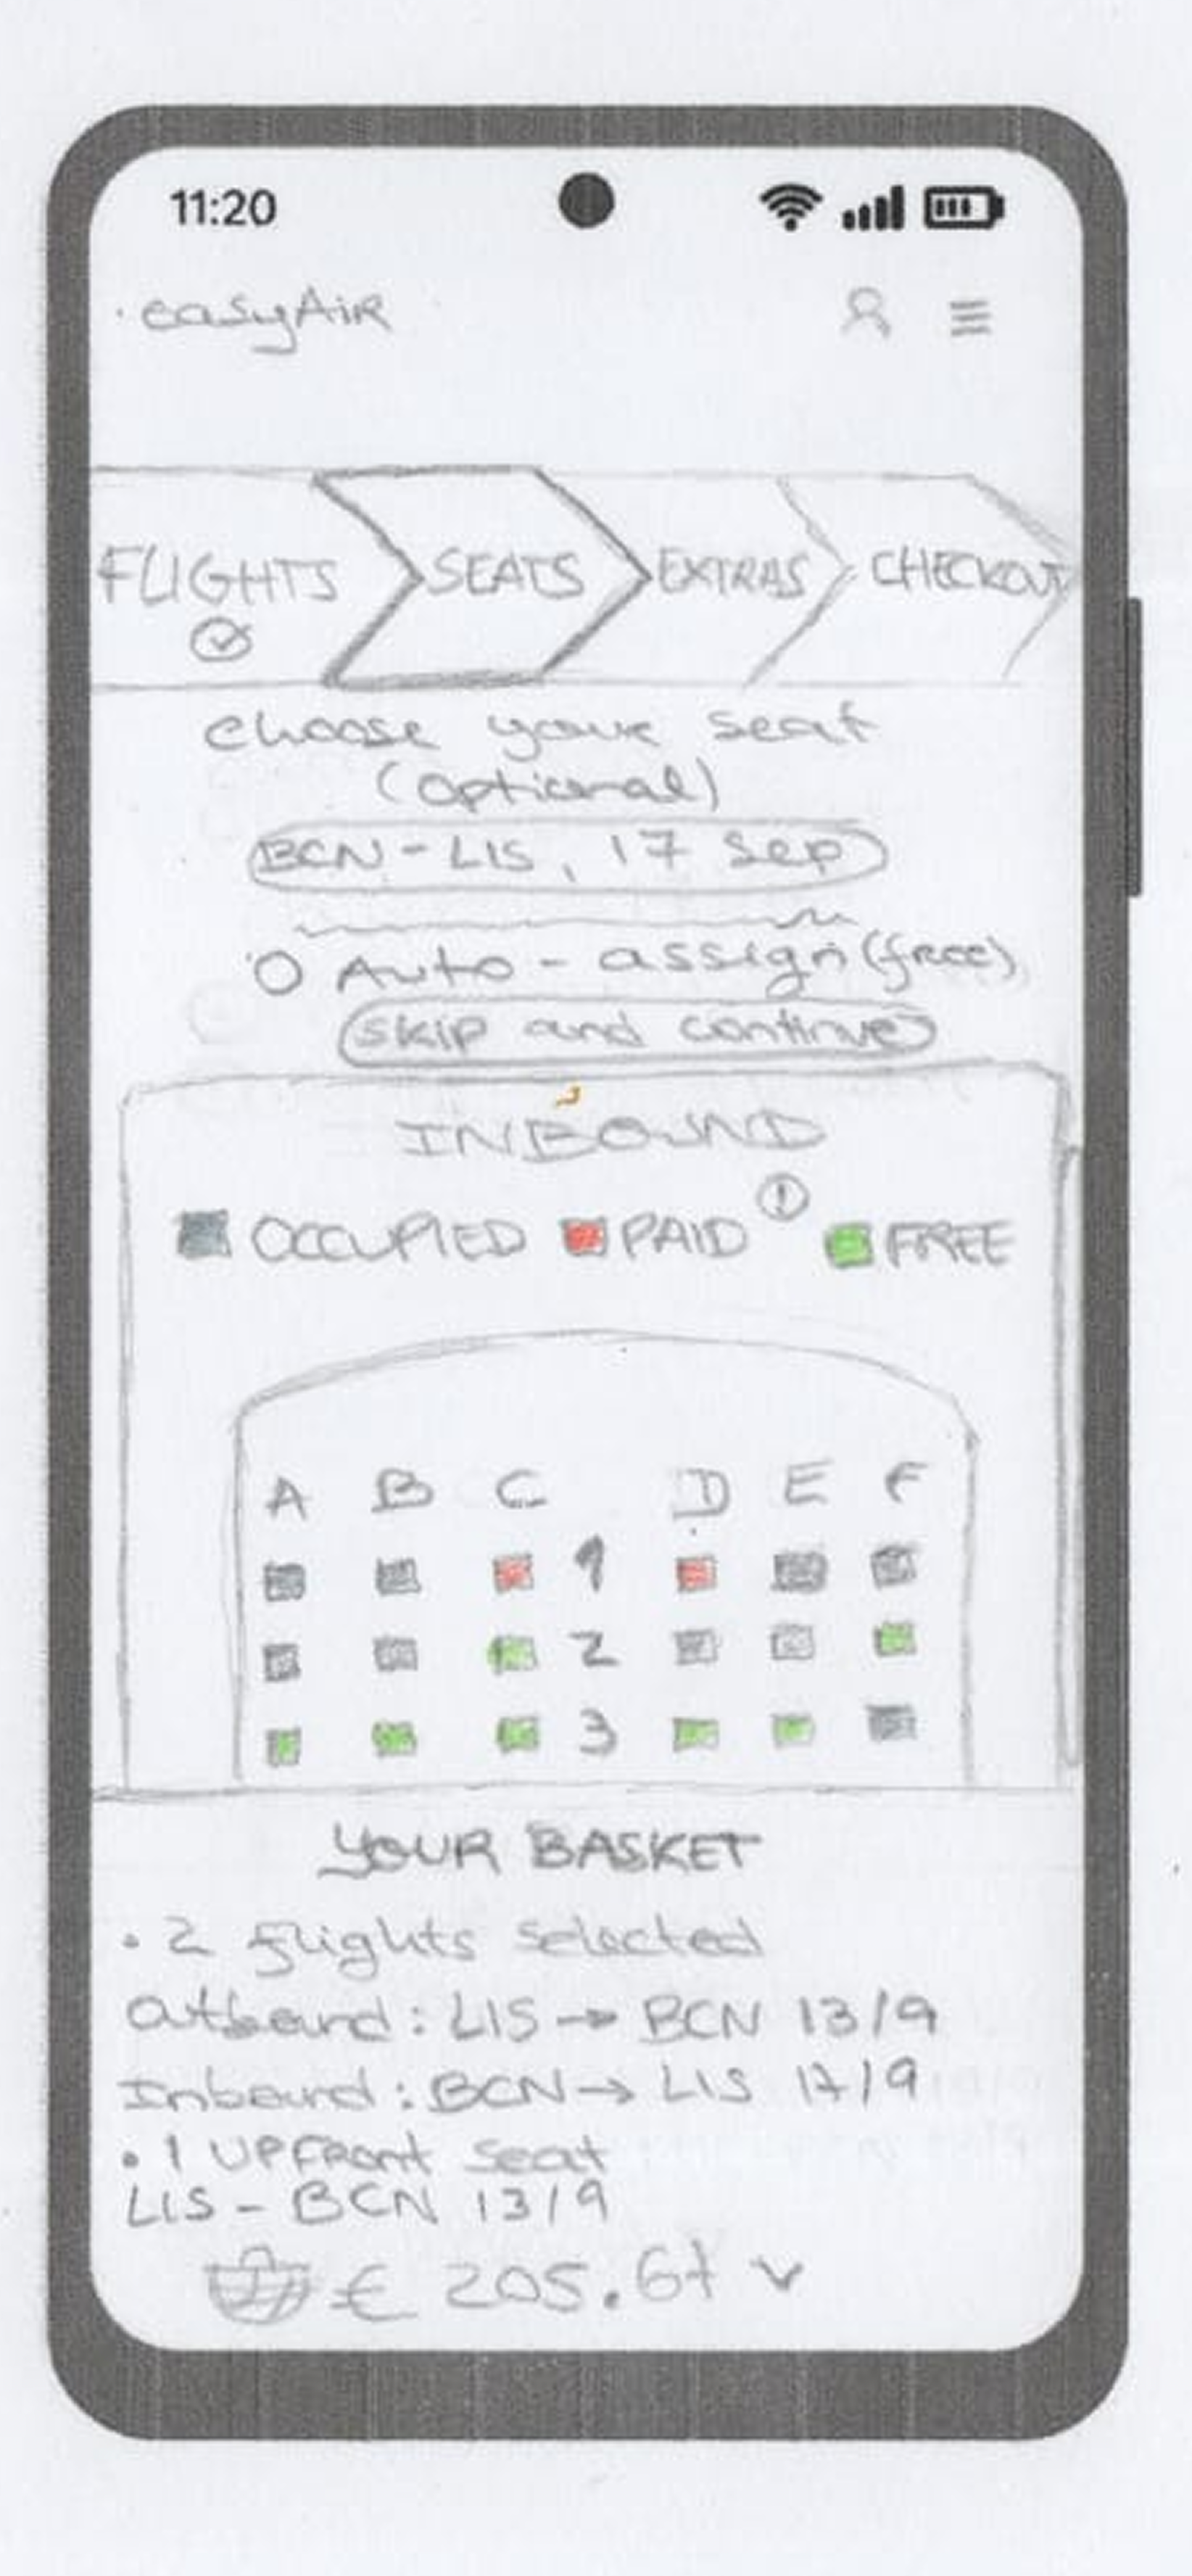 11:20
easyAiR
FLIGHTS SEATS EXTRAS CHECKOUT
choose your seat
(optional)
BCN - LIS, 17 Sep
O Auto - assign (free)
skip and continue
INBOUND
OCCUPIED PAID ! FREE
A B C D E F
1
2
3
YOUR BASKET
• 2 flights selected
Outbound: LIS → BCN 13/9
Inbound: BCN → LIS 17/9
• 1 UPFRont seat
LIS - BCN 13/9
€ 205.67